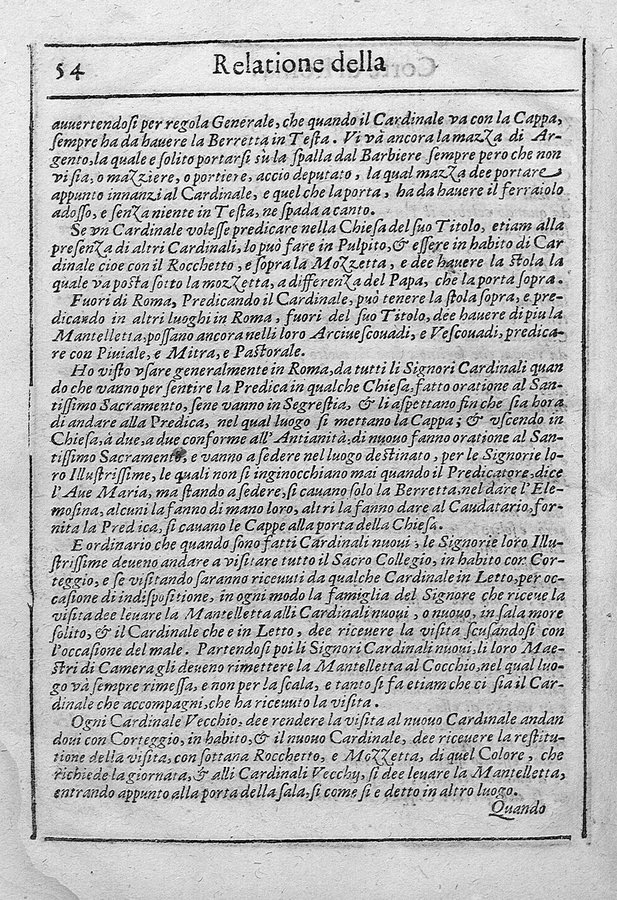 54 Relatione della
auuertendosi per regola Generale, che quando il Cardinale va con la Cappa,
sempre ha da hauere la Berretta in Testa. Vi và ancora la mazza di Ar-
gento, la quale e solito portarsi su la spalla dal Barbiere sempre pero che non
vi sia, o mazziere, o portiere, accio deputato, la qual mazza dee portare
appunto innanzi al Cardinale, e quel che la porta, ha da hauere il ferraiolo
adosso, e senza niente in Testa, ne spada a canto.
Se vn Cardinale volesse predicare nella Chiesa del suo Titolo, etiam alla
presenza di altri Cardinali, lo può fare in Pulpito, & essere in habito di Car
dinale cioe con il Rocchetto, e sopra la Mozzetta, e dee hauere la stola la
quale va posta sotto la mozzetta, a differenza del Papa, che la porta sopra.
Fuori di Roma, Predicando il Cardinale, può tenere la stola sopra, e pre-
dicando in altri luoghi in Roma, fuori del suo Titolo, dee hauere di piu la
Mantelletta, possano ancora nelli loro Arciuescouadi, e Vescouadi, predica-
re con Piuiale, e Mitra, e Pastorale.
Ho visto vsare generalmente in Roma, da tutti li Signori Cardinali quan
do che vanno per sentire la Predica in qualche Chiesa, fatto oratione al San-
tissimo Sacramento, sene vanno in Segrestia, & li aspettano fin che sia hora
di andare alla Predica, nel qual luogo si mettano la Cappa; & vscendo in
Chiesa, à due, a due conforme all' Antianità, di nuouo fanno oratione al San-
tissimo Sacramento, e vanno a sedere nel luogo destinato, per le Signorie lo-
ro Illustrissime, le quali non si inginocchiano mai quando il Predicatore, dice
l'Aue Maria, ma stando a sedere, si cauano solo la Berretta, nel dare l'Ele-
mosina, alcuni la fanno di mano loro, altri la fanno dare al Caudatario, for-
nita la Predica, si cauano le Cappe alla porta della Chiesa.
E ordinario che quando sono fatti Cardinali nuoui, le Signorie loro Illu-
strissime deueno andare a visitare tutto il Sacro Collegio, in habito con Cor-
teggio, e se visitando saranno riceuuti da qualche Cardinale in Letto, per oc-
casione di indispositione, in ogni modo la famiglia del Signore che riceue la
visita dee leuare la Mantelletta alli Cardinali nuoui, o nuouo, in sala more
solito, & il Cardinale che e in Letto, dee riceuere la visita scusandosi con
l'occasione del male. Partendosi poi li Signori Cardinali nuoui, li loro Mae-
stri di Camera gli deueno rimettere la Mantelletta al Cocchio, nel qual luo-
go và sempre rimessa, e non per la scala, e tanto si fa etiam che ci sia il Car-
dinale che accompagni, che ha riceuuto la visita.
Ogni Cardinale Vecchio, dee rendere la visita al nuouo Cardinale andan
doui con Corteggio, in habito, & il nuouo Cardinale, dee riceuere la restitu-
tione della visita, con sottana Rocchetto, e Mozzetta, di quel Colore, che
richiede la giornata, & alli Cardinali Vecchy, si dee leuare la Mantelletta,
entrando appunto alla porta della sala, si come si e detto in altro luogo.
Quando